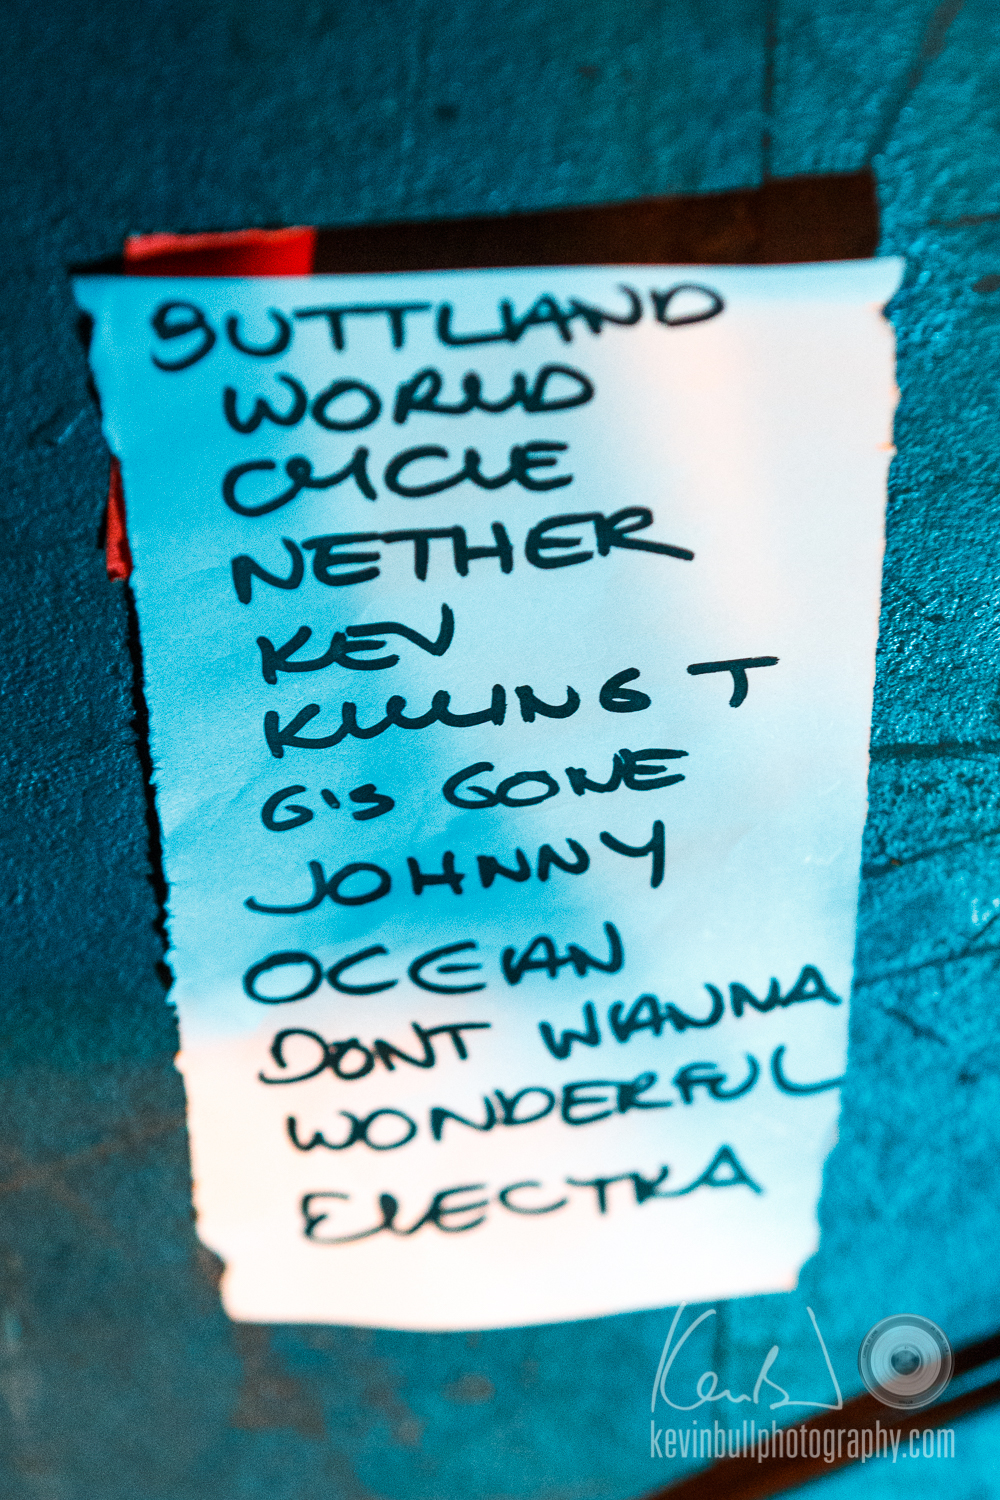 BUTTLAND
WORLD
CYCLE
NETHER
KEV
KILLING T
G's GONE
JOHNNY
OCEAN
DONT WANNA
WONDERFUL
ELECTRA
kevinbullphotography.com